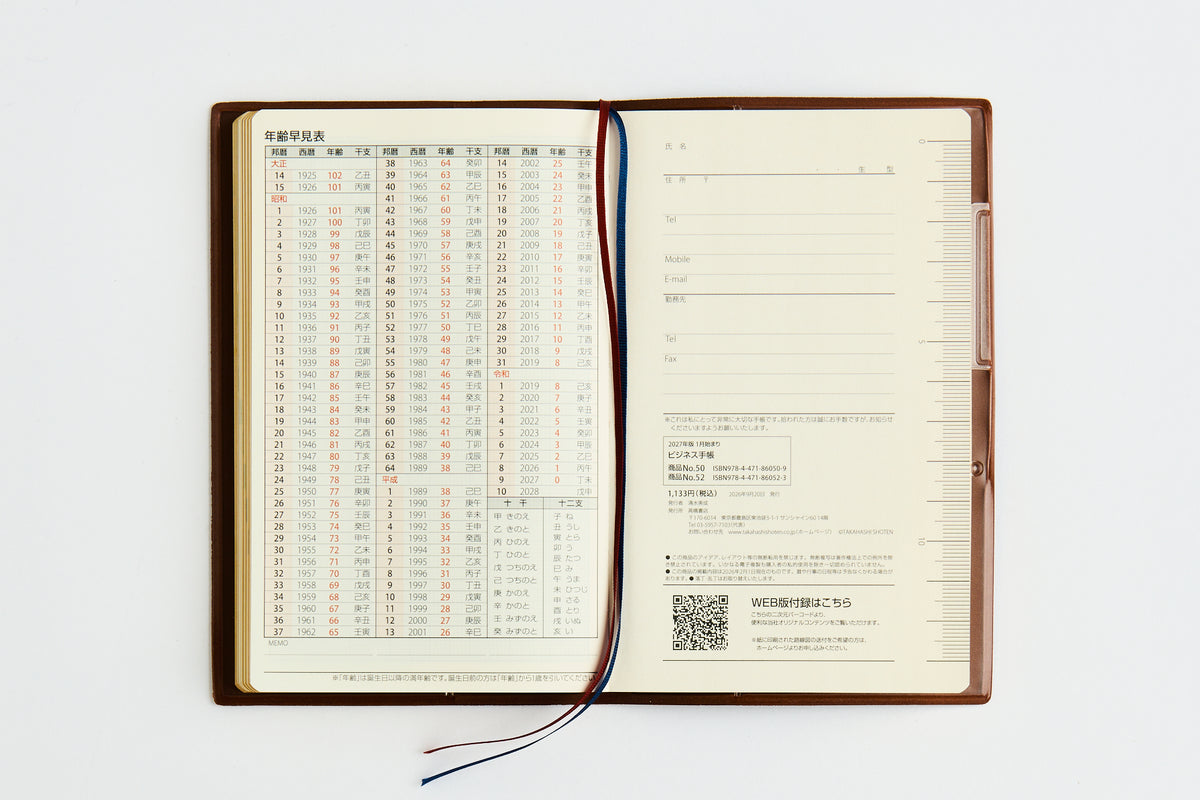 年齢早見表
邦暦 西暦 年齢 干支
大正
14 1925 102 乙丑
15 1926 101 丙寅
昭和
1 1926 101 丙寅
2 1927 100 丁卯
3 1928 99 戊辰
4 1929 98 己巳
5 1930 97 庚午
6 1931 96 辛未
7 1932 95 壬申
8 1933 94 癸酉
9 1934 93 甲戌
10 1935 92 乙亥
11 1936 91 丙子
12 1937 90 丁丑
13 1938 89 戊寅
14 1939 88 己卯
15 1940 87 庚辰
16 1941 86 辛巳
17 1942 85 壬午
18 1943 84 癸未
19 1944 83 甲申
20 1945 82 乙酉
21 1946 81 丙戌
22 1947 80 丁亥
23 1948 79 戊子
24 1949 78 己丑
25 1950 77 庚寅
26 1951 76 辛卯
27 1952 75 壬辰
28 1953 74 癸巳
29 1954 73 甲午
30 1955 72 乙未
31 1956 71 丙申
32 1957 70 丁酉
33 1958 69 戊戌
34 1959 68 己亥
35 1960 67 庚子
36 1961 66 辛丑
37 1962 65 壬寅
邦暦 西暦 年齢 干支
38 1963 64 癸卯
39 1964 63 甲辰
40 1965 62 乙巳
41 1966 61 丙午
42 1967 60 丁未
43 1968 59 戊申
44 1969 58 己酉
45 1970 57 庚戌
46 1971 56 辛亥
47 1972 55 壬子
48 1973 54 癸丑
49 1974 53 甲寅
50 1975 52 乙卯
51 1976 51 丙辰
52 1977 50 丁巳
53 1978 49 戊午
54 1979 48 己未
55 1980 47 庚申
56 1981 46 辛酉
57 1982 45 壬戌
58 1983 44 癸亥
59 1984 43 甲子
60 1985 42 乙丑
61 1986 41 丙寅
62 1987 40 丁卯
63 1988 39 戊辰
64 1989 38 己巳
平成
1 1989 38 己巳
2 1990 37 庚午
3 1991 36 辛未
4 1992 35 壬申
5 1993 34 癸酉
6 1994 33 甲戌
7 1995 32 乙亥
8 1996 31 丙子
9 1997 30 丁丑
10 1998 29 戊寅
11 1999 28 己卯
12 2000 27 庚辰
13 2001 26 辛巳
邦暦 西暦 年齢 干支
14 2002 25 壬午
15 2003 24 癸未
16 2004 23 甲申
17 2005 22 乙酉
18 2006 21 丙戌
19 2007 20 丁亥
20 2008 19 戊子
21 2009 18 己丑
22 2010 17 庚寅
23 2011 16 辛卯
24 2012 15 壬辰
25 2013 14 癸巳
26 2014 13 甲午
27 2015 12 乙未
28 2016 11 丙申
29 2017 10 丁酉
30 2018 9 戊戌
31 2019 8 己亥
令和
1 2019 8 己亥
2 2020 7 庚子
3 2021 6 辛丑
4 2022 5 壬寅
5 2023 4 癸卯
6 2024 3 甲辰
7 2025 2 乙巳
8 2026 1 丙午
9 2027 0 丁未
10 2028 戊申
十干
甲 きのえ
乙 きのと
丙 ひのえ
丁 ひのと
戊 つちのえ
己 つちのと
庚 かのえ
辛 かのと
壬 みずのえ
癸 みずのと
十二支
子 ね
丑 うし
寅 とら
卯 う
辰 たつ
巳 み
午 うま
未 ひつじ
申 さる
酉 とり
戌 いぬ
亥 い
MEMO
※「年齢」は誕生日以降の満年齢です。誕生日前の方は「年齢」から1歳を引いてください
氏 名
・ ・ 生 型
住 所 〒
Tel
Mobile
E-mail
勤務先
Tel
Fax
※これは私にとって非常に大切な手帳です。拾われた方は誠にお手数ですが、お知らせ
くださいますようお願いいたします。
2027年版 1月始まり
ビジネス手帳
商品No.50 ISBN978-4-471-86050-9
商品No.52 ISBN978-4-471-86052-3
1,133円(税込) 2026年9月20日 発行
発行者 清水美成
発行所 高橋書店
〒170-6014 東京都豊島区東池袋3-1-1 サンシャイン60 14階
Tel 03-5957-7103(代表)
お問い合わせ先 www.takahashishoten.co.jp(ホームページ) ©TAKAHASHISHOTEN
● この商品のアイデア、レイアウト等の無断転用を禁じます。無断複写は著作権法上での例外を除
き禁止されています。いかなる電子複製も購入者の私的使用を除き一切認められていません。
● この商品の掲載内容は2026年2月1日現在のものです。暦や行事の日程等は予告なくかわる場合が
あります。● 落丁・乱丁はお取り替えいたします。
WEB版付録はこちら
こちらの二次元バーコードより、
便利な当社オリジナルコンテンツをご覧いただけます。
※紙に印刷された路線図の送付をご希望の方は、
ホームページよりお申し込みください。
0
5
10